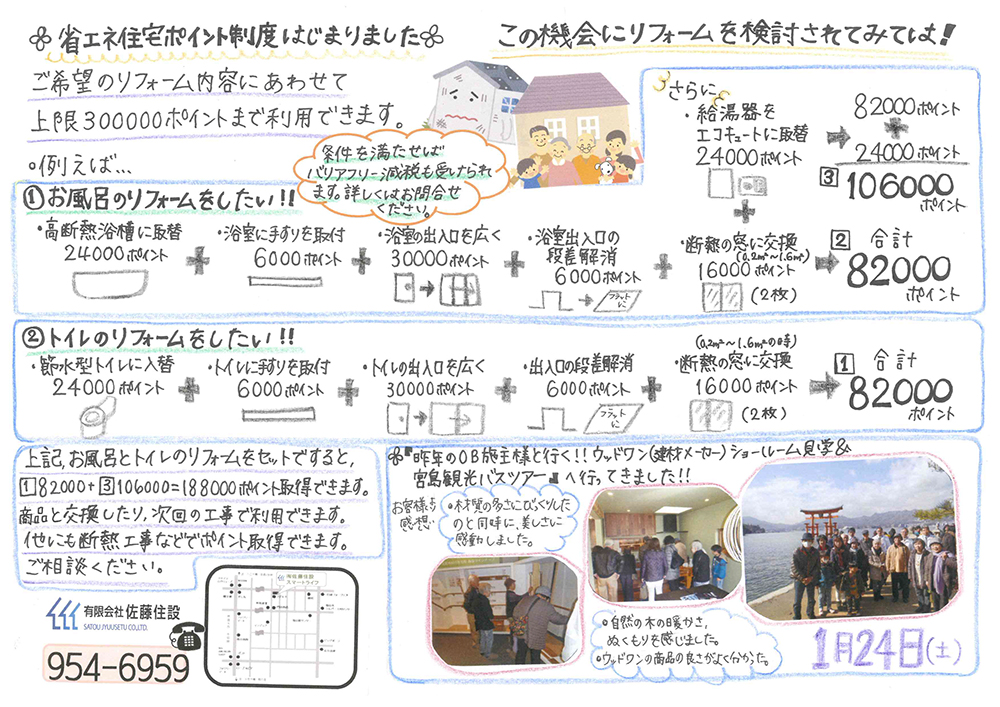 省エネ住宅ポイント制度はじまりました
この機会にリフォームを検討されてみては!
ご希望のリフォーム内容にあわせて
上限300000ポイントまで利用できます。
・例えば…
条件を満たせば
バリアフリー減税も受けられ
ます。詳しくはお問合せ
ください。
さらに
・給湯器を
エコキュートに取替
24000ポイント
82000ポイント
+
24000ポイント
3 106000
ポイント
+
①お風呂のリフォームをしたい!!
・高断熱浴槽に取替
24000ポイント
+
・浴室に手すりを取付
6000ポイント
+
・浴室の出入口を広く
30000ポイント
+
・浴室出入口の
段差解消
6000ポイント
フラットに
+
・断熱の窓に交換
(0.2㎡~1.6㎡)
16000ポイント
(2枚)
2 合計
82000
ポイント
②トイレのリフォームをしたい!!
・節水型トイレに入替
24000ポイント
+
・トイレに手すりを取付
6000ポイント
+
・トイレの出入口を広く
30000ポイント
+
・出入口の段差解消
6000ポイント
フラットに
+
(0.2㎡~1.6㎡の時)
・断熱の窓に交換
16000ポイント
(2枚)
1 合計
82000
ポイント
上記、お風呂とトイレのリフォームをセットですると、
1 82000+3 106000=188000ポイント取得できます。
商品と交換したり、次回の工事で利用できます。
他にも断熱工事などでポイント取得できます。
ご相談ください。
有限会社 佐藤住設
SATOU JYUUSETU CO.,LTD.
954-6959
㈲佐藤住設
スマートライフ
『昨年のOB施主様と行く!!ウッドワン(建材メーカー)ショールーム見学&
宮島観光バスツアー』へ行ってきました!!
お客様より
感想
・木材質の多さにびっくりした
のと同時に、美しさに
感動しました。
・自然の木の暖かさ、
ぬくもりを感じました。
・ウッドワンの商品の良さがよく分かった。
1月24日(土)